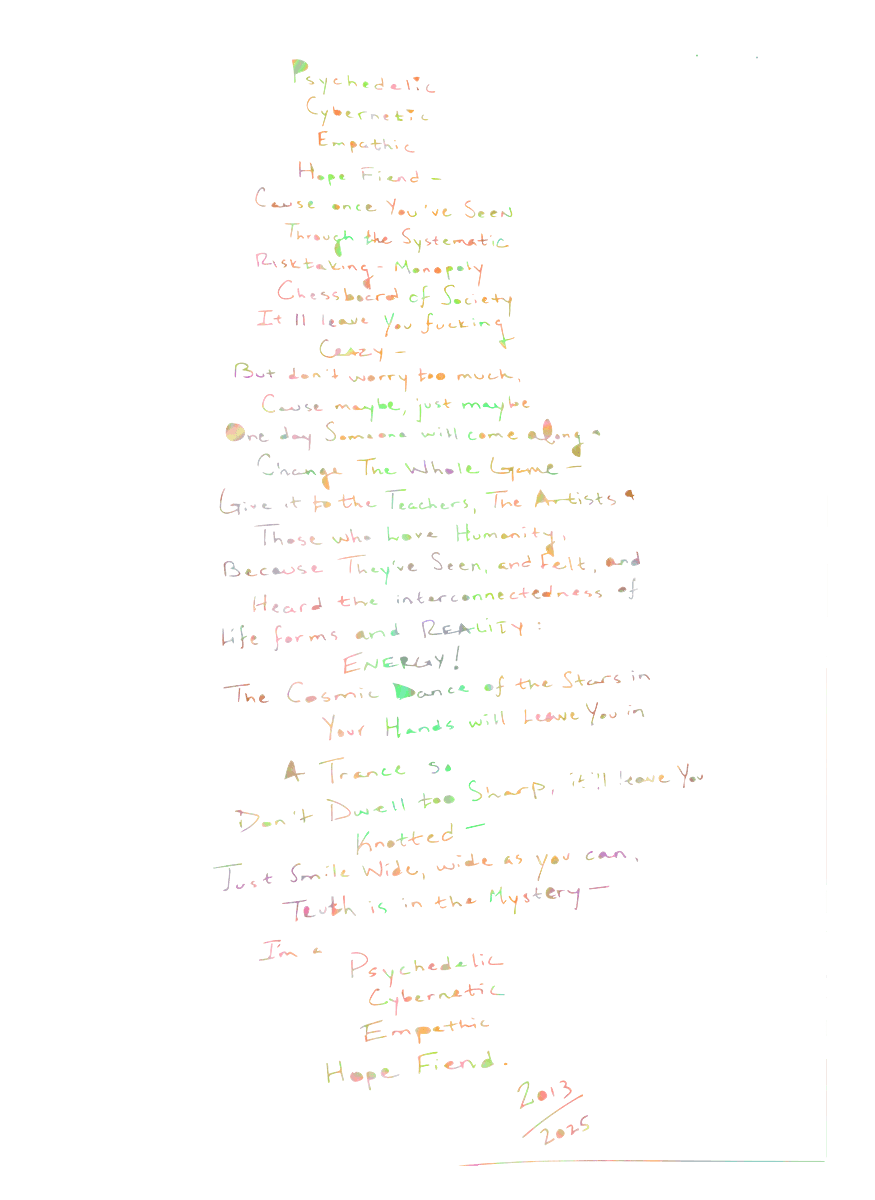 Psychedelic
Cybernetic
Empathic
Hope Fiend –
Cause once You've Seen
Through the Systematic
Risktaking - Monopoly
Chessboard of Society
It'll leave You fucking
Crazy –
But don't worry too much,
Cause maybe, just maybe
One day Someone will come along &
Change The Whole Game –
Give it to the Teachers, The Artists &
Those who Love Humanity,
Because They've Seen, and Felt, and
Heard the interconnectedness of
Life forms and REALITY:
ENERGY!
The Cosmic Dance of the Stars in
Your Hands will Leave You in
A Trance so
Don't Dwell too Sharp, it'll leave You
Knotted –
Just Smile Wide, wide as you can,
Truth is in the Mystery –
I'm a
Psychedelic
Cybernetic
Empathic
Hope Fiend.
2013/2025